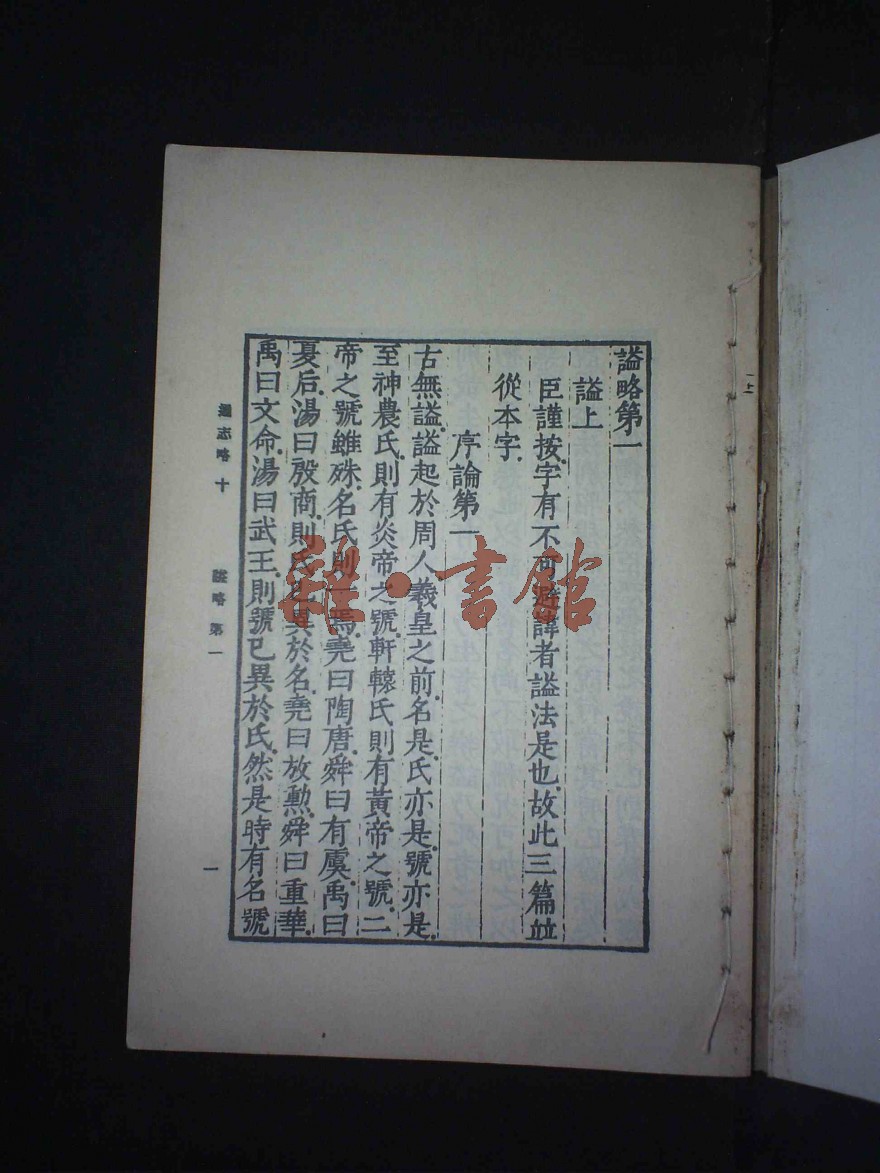 謚略第一
謚上
臣謹按字有不可避諱者謚法是也故此三篇竝
從本字
序論第一
古無謚謚起於周人羲皇之前名是氏亦是號亦是
至神農氏則有炎帝之號軒轅氏則有黃帝之號二
帝之號雖殊名氏則一焉堯曰陶唐舜曰有虞禹曰
夏后湯曰殷商則氏已異於名堯曰放勲舜曰重華
禹曰文命湯曰武王則號已異於氏然是時有名號
通志略十 謚略第一 一
書館